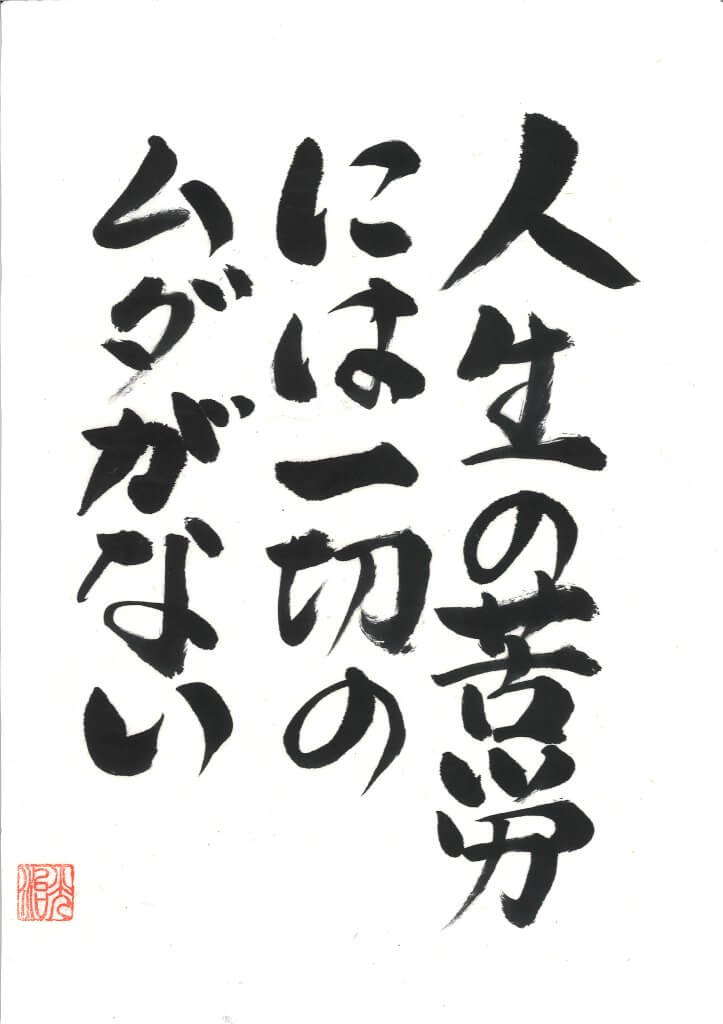 人生の苦労
には一切の
ムダがない